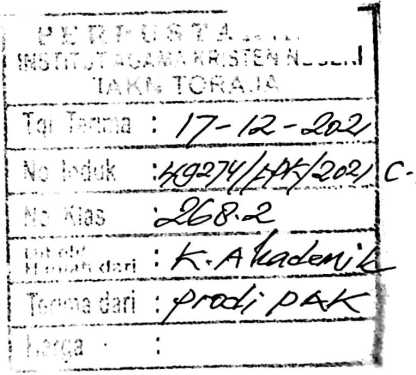 PERPUSTAKAAN
INSTITUT AGAMA KRISTEN NEGERI
IAKN TORAJA
Tgl Terima : 17-12-2021
No Induk : 49274/ /2021 C.
No. Klas : 268.2
Hadiah dari : K. Akademik
Terima dari : prodi PAK
Harga :